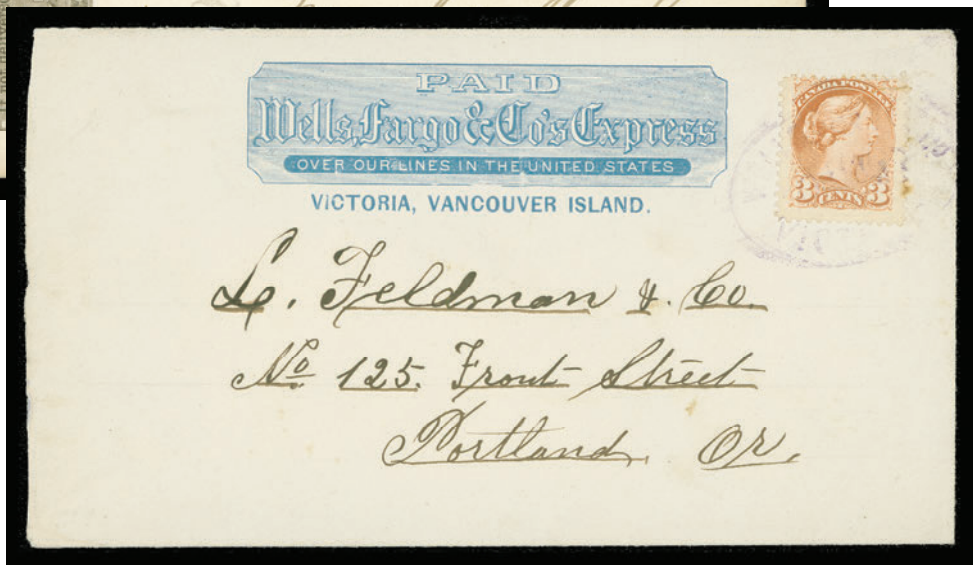 PAID
Wells, Fargo & Co's Express
OVER OUR LINES IN THE UNITED STATES
VICTORIA, VANCOUVER ISLAND.
CANADA POSTAGE
3 CENTS 3
VIC
L. Feldman & Co.
No 125. Front Street
Portland, Or.